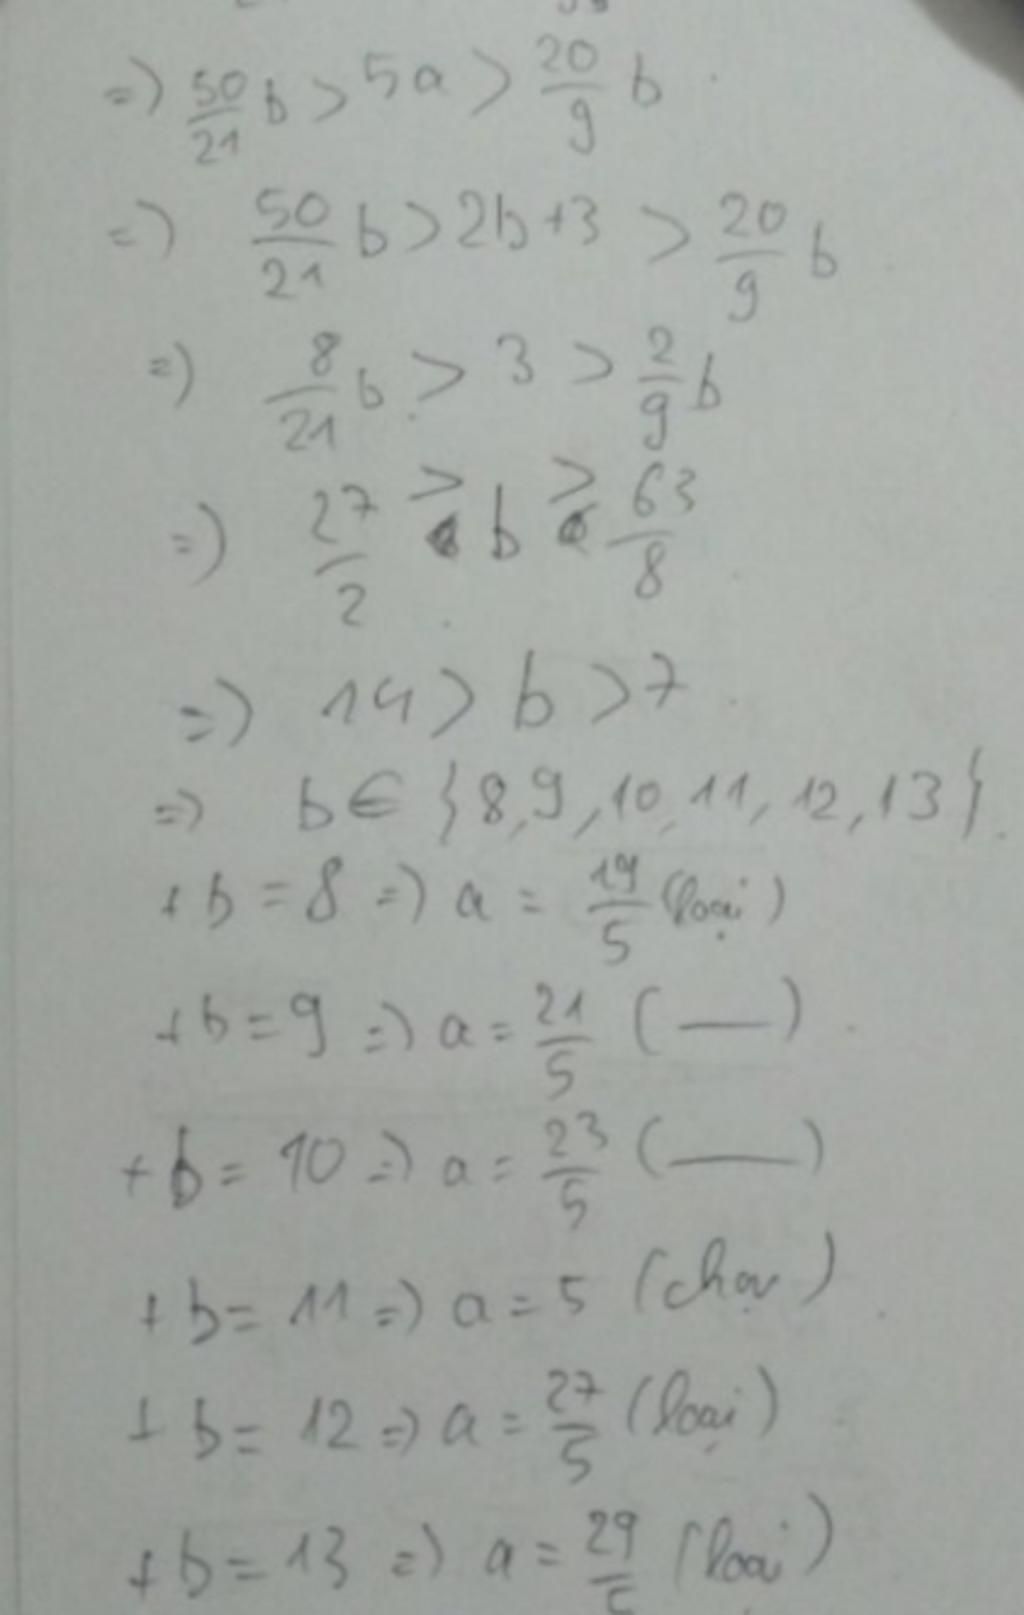 => 50/21 b > 5a > 20/9 b
=> 50/21 b > 2b+3 > 20/9 b
=> 8/21 b > 3 > 2/9 b
=> 27/2 > b > 63/8
=> 14 > b > 7
=> b ∈ {8, 9, 10, 11, 12, 13}.
+ b = 8 => a = 19/5 (loại)
+ b = 9 => a = 21/5 (—)
+ b = 10 => a = 23/5 (—)
+ b = 11 => a = 5 (chọn)
+ b = 12 => a = 27/5 (loại)
+ b = 13 => a = 29/5 (loại)